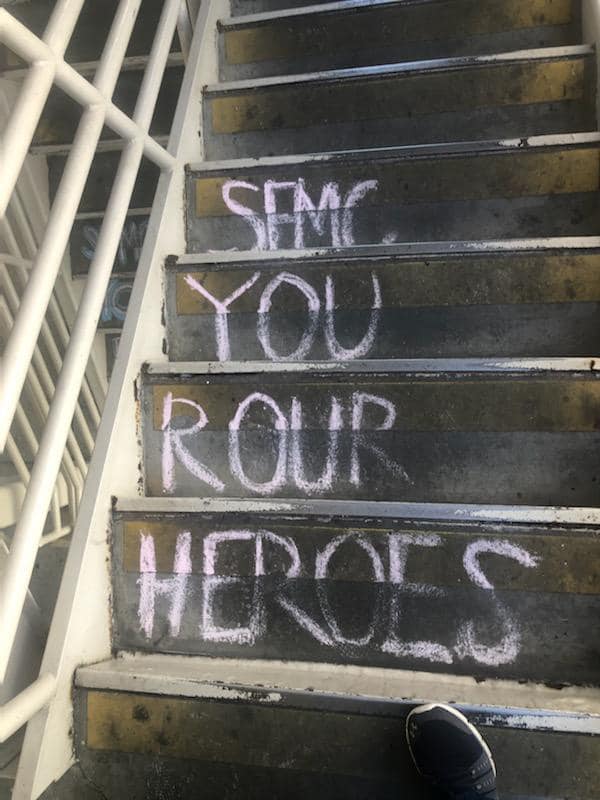 SFMC
YOU
R OUR
HEROES